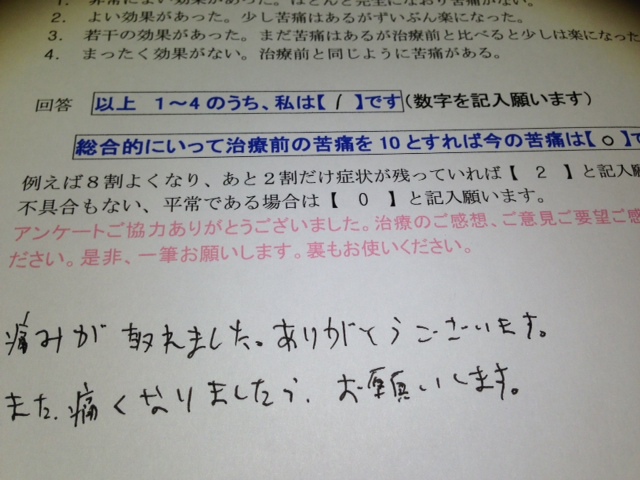 1. 非常によい効果があった。ほとんど完全になおり苦痛がない。
2. よい効果があった。少し苦痛はあるがずいぶん楽になった。
3. 若干の効果があった。まだ苦痛はあるが治療前と比べると少しは楽になった
4. まったく効果がない。治療前と同じように苦痛がある。
回答 以上 1〜4のうち、私は【 1 】です(数字を記入願います)
総合的にいって治療前の苦痛を10とすれば今の苦痛は【 0 】で
例えば8割よくなり、あと2割だけ症状が残っていれば【 2 】と記入
不具合もない、平常である場合は【 0 】と記入願います。
アンケートご協力ありがとうございました。治療のご感想、ご意見ご要望ご感
ださい。是非、一筆お願いします。裏もお使いください。
痛みが取れました。ありがとうございます。
また、痛くなりましたら、お願いします。